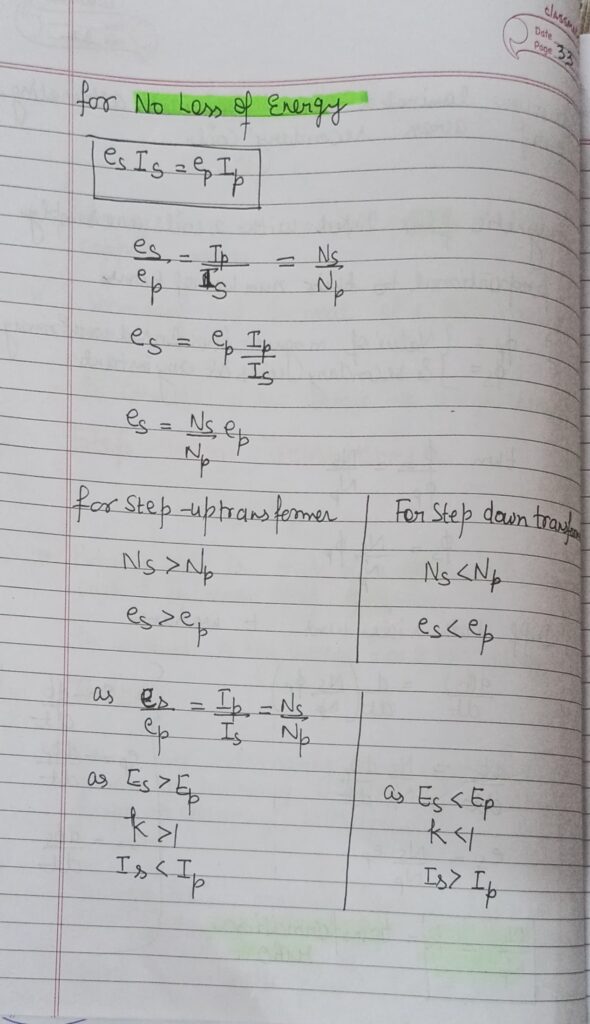 classmate
Date
Page 33
for No Loss of Energy
es Is = ep Ip
es/ep = Ip/Is = Ns/Np
es = ep Ip/Is
es = Ns/Np ep
for Step-up transformer
Ns > Np
es > ep
For Step down transform
Ns < Np
es < ep
as es/ep = Ip/Is = Ns/Np
as Es > Ep
k > 1
Is < Ip
as Es < Ep
k < 1
Is > Ip